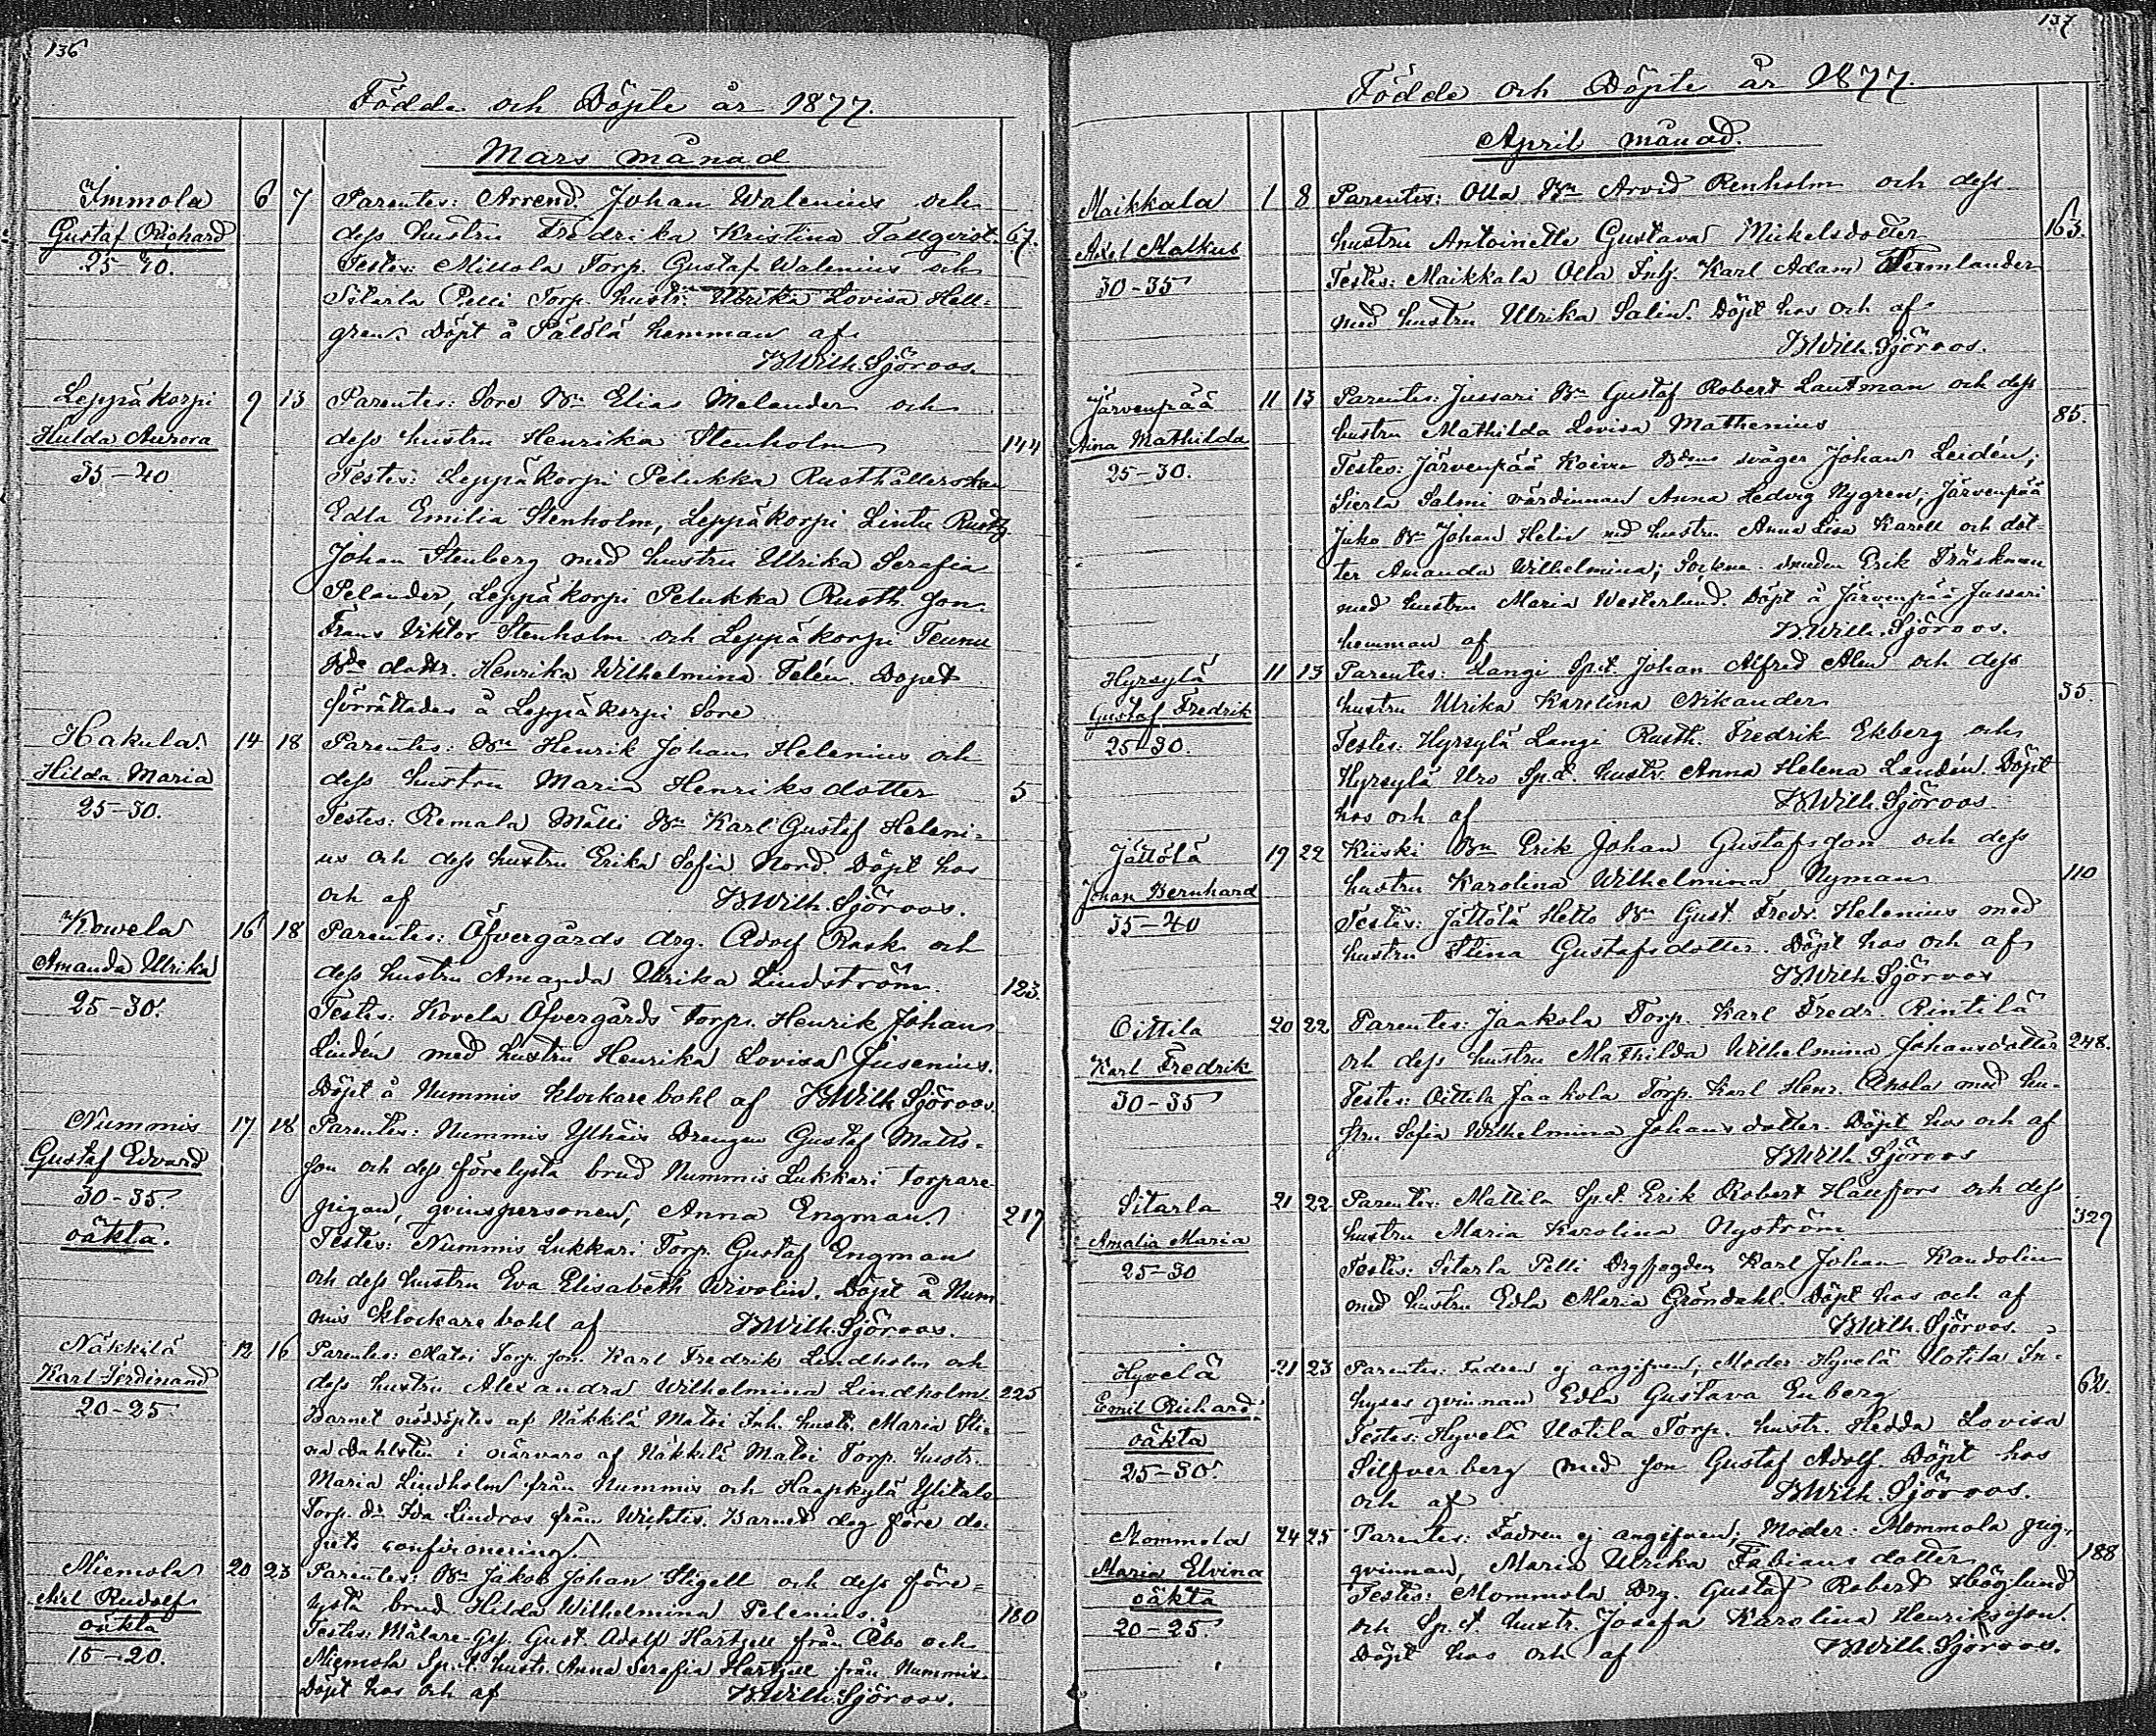 136
Födde och Döpte år 1877.
Mars månad
Immola 6 7 Parentes: Arrend. Johan Walenius och
Gustaf Richard dess hustru Fredrika Kristina Tallqvist. 67.
25-30. Testes: Millola Torp. Gustaf Walenius och
Sitarla Pelli Torp. hustr: Ulrika Lovisa Hell-
gren. Döpt å Pälölä hemman af
KWilh. Sjöroos.
Leppäkorpi 9 13 Parentes: Sore Bn Elias Melander och
Hulda Aurora dess hustru Henrika Stenholm 144
35-40 Testes: Leppäkorpi Pelukka Rusthållerskan
Edla Emilia Stenholm, Leppäkorpi Lintu Rusth
Johan Stenberg med hustru Ulrika Serafia
Selander, Leppäkorpi Pelukka Rusth. son
Frans Viktor Stenholm och Leppäkorpi Teunu
Bde dottr. Henrika Wilhelmina Telén. Dopet
förrättades å Leppäkorpi Sore
Hakula. 14 18 Parentes: Bn Henrik Johan Helenius och
Hilda Maria dess hustru Maria Henriksdotter 5
25-30. Testes: Remala Mälli Bn Karl Gustaf Heleni-
us och dess hustru Erika Sofia Nord. Döpt hos
och af KWilh. Sjöroos.
Kowela 16 18 Parentes: Öfvergårds drg. Adolf Rask och
Amanda Ulrika dess hustru Amanda Ulrika Lindström. 123.
25-30. Testes: Kovela Öfvergårds torp. Henrik Johan
Lindén med hustru Henrika Lovisa Jusenius.
Döpt å Nummis klockarebohl af KWilh Sjöroos.
Nummis 17 18 Parentes: Nummis Ylhäis Drengen Gustaf Matts-
Gustaf Edvard son och dess förelysta brud Nummis Lukkari torpare
30-35. pigan, qvinspersonen, Anna Engman. 217
oäkta. Testes: Nummis Lukkari Torp. Gustaf Engman
och dess hustru Eva Elisabeth Wivolin. Döpt å Num
mis klockarebohl af KWilh. Sjöroos.
Näkkilä 12 16 Parentes: Matoi Torp. son. Karl Fredrik Lindholm och
Karl Ferdinand dess hustru Alexandra Wilhelmina Lindholm. 225
20-25 Barnet nöddöptes af Näkkilä Matoi Inh. hustr. Maria Sti-
na Dahlsten i närvaro af Näkkilä Matoi Torp. hustr.
Maria Lindholm från Nummis och Haapkylä Ylitalo
Torp. dr Ida Lindros från Wichtis. Barnet dog före do-
pets confirmering.
Niemola 20 23 Parentes: Bn Jakob Johan Stigell och dess före-
Axel Rudolf lysta brud Hilda Wilhelmina Pelenius. 180
oäkta Testes: Målare-Ges. Gust. Adolf Hartzell från Åbo och
15-20. Niemola Sp.t. hustr. Anna Serafia Hartzell från Nummis.
Döpt hos och af KWilh. Sjöroos.
137
Födde och Döpte år 1877.
April månad.
Maikkala 1 8 Parentes: Olla Bn Arvid Renholm och dess
Axel Malkus hustru Antoinette Gustava Mikelsdotter 163.
30-35 Testes: Maikkala Olla Inh. Karl Adam Temlander
med hustru Ulrika Salin. Döpt hos och af
KWilh. Sjöroos.
Järvenpää 11 13 Parentes: Jussari Bn Gustaf Robert Lautman och dess
Aina Mathilda hustru Mathilda Lovisa Mathenius 85.
25-30. Testes: Järvenpää Koivu Bdens svåger Johan Leidén;
Sierla Salmi värdinnan Anna Hedvig Nygren, Järvenpää
Juko Bn Johan Helin med hustru Anna Lisa Karell och dot-
ter Amanda Wilhelmina; Erik Träskman
med hustru Maria Westerlund. Döpt å Järvenpää Jussari
hemman af KWilh. Sjöroos.
Hyrsylä 11 13 Parentes: Langi Sp.t. Johan Alfred Alen och dess
Gustaf Fredrik hustru Ulrika Karolina Nikander 35.
25-30. Testes: Hyrsylä Langi Rusth. Fredrik Ekberg och
Hyrsylä Uro Sp.t. hustr. Anna Helena Lendén. Döpt
hos och af KWilh. Sjöroos
Jättölä 19 22 Kiiski Bn Erik Johan Gustafsson och dess
Johan Bernhard hustru Karolina Wilhelmina Nyman 110
35-40 Testes: Jättölä Hetto Bn Gust. Fredr. Helenius med
hustru Stina Gustafsdotter. Döpt hos och af
KWilh. Sjöroos
Oittila 20 22 Parentes: Jaakola Torp. Karl Fredr. Rintilä
Karl Fredrik och dess hustru Mathilda Wilhelmina Johansdotter 248.
30-35 Testes: Oittila Jaakola Torp. Karl Henr. Ahola med hu-
stru Sofia Wilhelmina Johansdotter. Döpt hos och af
KWilh. Sjöroos
Sitarla 21 22 Parentes: Mattila Sp.t. Erik Robert Hällfors och dess
Amalia Maria hustru Maria Karolina Nyström 329
25-30 Testes: Sitarla Pelli Drgfogden Karl Johan Kandolin
med hustru Edla Maria Gröndahl. Döpt hos och af
KWilh. Sjöroos.
Hyvelä 21 23 Parentes: Fadren ej angifven; Moder: Hyvelä Uotila In-
Emil Richard. hyses qvinnan Edla Gustava Enberg 62.
oäkta Testes: Hyvelä Uotila Torp. hustr. Hedda Lovisa
25-30. Silfverberg med son Gustaf Adolf. Döpt hos
och af KWilh. Sjöroos.
Mommola 24 25 Parentes: Fadren ej angifven; Moder: Mommola pig-
Maria Elvina qvinnan, Maria Ulrika Fabiansdotter 188
oäkta Testes: Mommola Drg. Gustaf Robert Höglund
20-25 och Sp.t. hustr. Josefa Karolina Henriksson.
Döpt hos och af KWilh. Sjöroos.